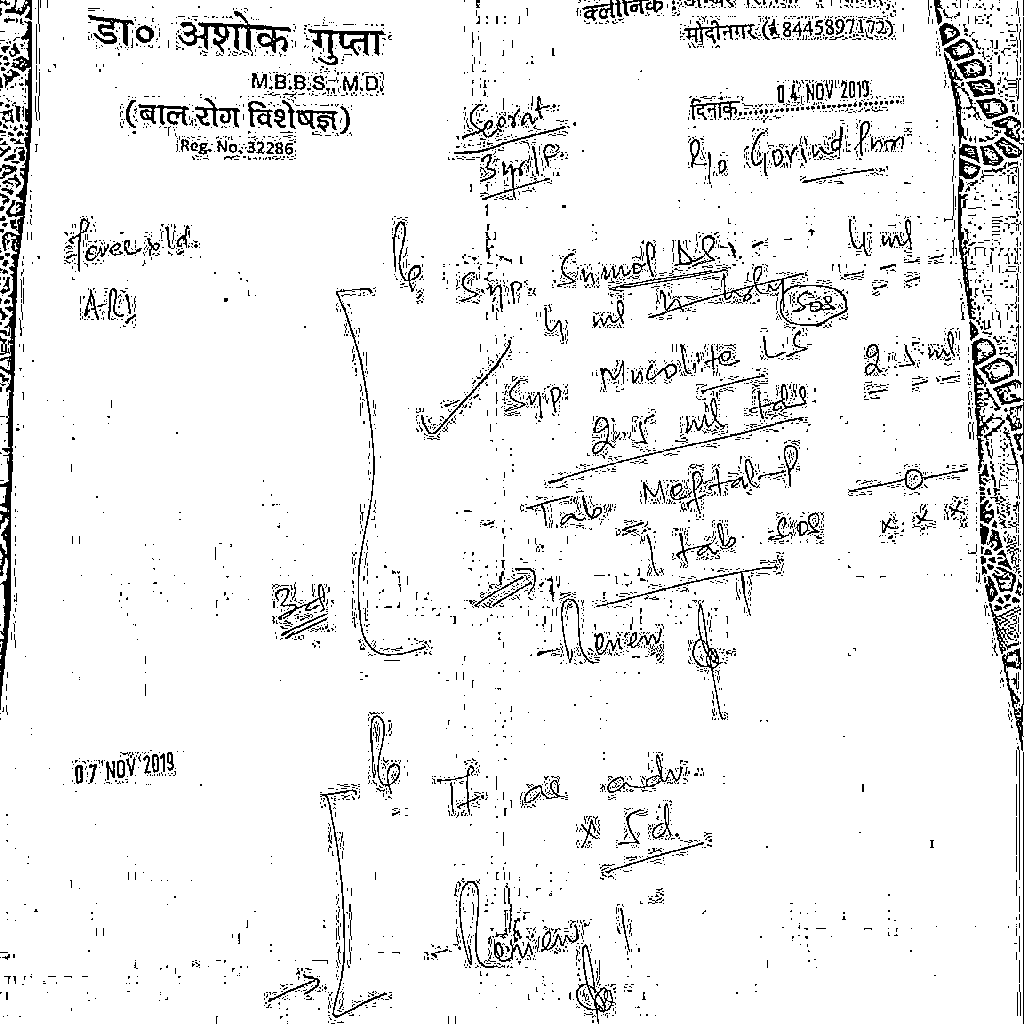 डा० अशोक गुप्ता
M.B.B.S. M.D.
(बाल रोग विशेषज्ञ)
Reg. No. 32286
क्लीनिक
मोदीनगर (8445897172)
दिनांक 04 NOV 2019
3 yr/F
R/o Govind Puri
Fever, cold
ARI
Rp Syp. Sumol DS 4 ml
4 ml SOS
Syp Mucolite LS 2.5 ml
2.5 ml tds
Tab Meftal-P
1 tab SOS x x x
3d
Review
07 NOV 2019
Rp Tt as adv.
x 5d.
Review